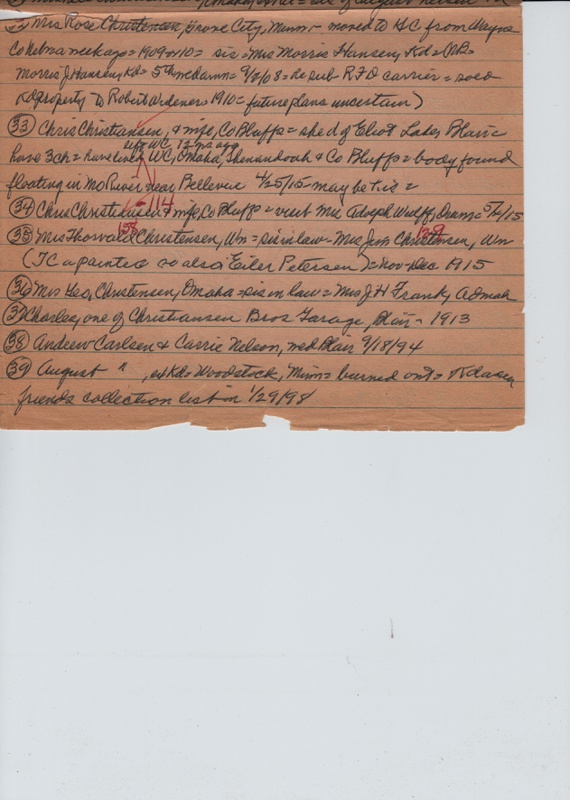 Mrs Rose Christensen, Grove City, Minn - moved to GC from Wayne
Co Nebr a week ago = 1909 or 10 = sis = Mrs Morris Hansen, Kd =
Morris J Hansen, Kd = 5th 9/2/08 = He sub RFD carrier = sold
Kd property to Robert 1910 = future plans uncertain)
(33) Chris Christiansen, & wife, Co Bluffs = she d of Eliot Lakes Blair
left WC 12 ms ago
have 3 ch = have lived WC, Omaha, Shenandoah & Co Bluffs = body found
floating in Mo River near Bellevue 4/25/15 - may be his =
114
(34) Chris Christensen & wife, Co Bluff = visit Mrs Adolph Wulff, Oram = 5/4/15
138 139
(35) Mrs Thorvald Christensen, Wn = sis in law - Mrs Jim Christensen, Wn
(TC a painter so also Eiler Petersen) = Nov-Dec 1915
(36) Mrs Geo, Christensen, Omaha = sis in law = Mrs J H Frank, Admah
37 Charles, one of Christiansen Bros Garage, Blair - 1913
(38) Andrew Carlsen & Carrie Nelson, med Blair 9/18/94
(39) August ", ex Kd = Woodstock, Minn = burned out =
friends collection list in 1/29/98